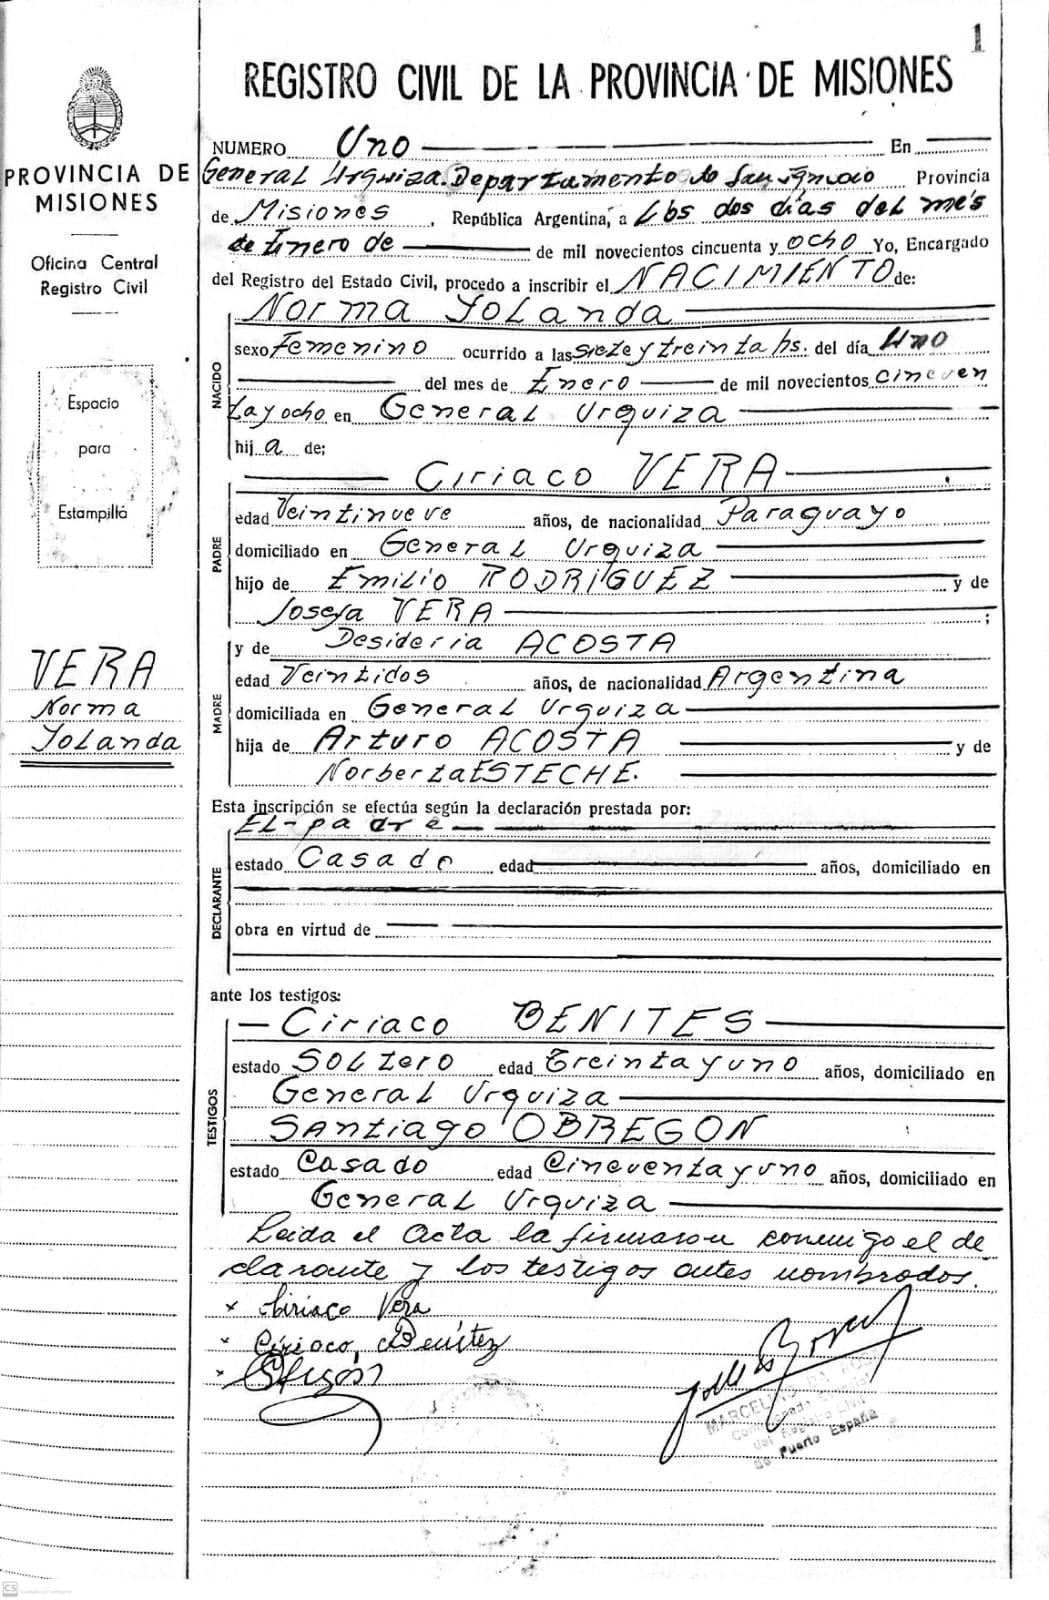 1
REGISTRO CIVIL DE LA PROVINCIA DE MISIONES
PROVINCIA DE
MISIONES
Oficina Central
Registro Civil
Espacio
para
Estampilla
VERA
Norma
Yolanda
NUMERO Uno En
General Urquiza. Departamento de San Ignacio Provincia
de Misiones, República Argentina, a Los dos días del més
de Enero de de mil novecientos cincuenta y ocho Yo, Encargado
del Registro del Estado Civil, procedo a inscribir el NACIMIENTO de:
NACIDO
Norma Yolanda
sexo Femenino ocurrido a las siete y treinta hs. del día uno
del mes de Enero de mil novecientos cincuen
ta y ocho en General Urquiza
hija de;
PADRE
Ciriaco VERA
edad Veintinueve años, de nacionalidad Paraguayo
domiciliado en General Urquiza
hijo de Emilio RODRIGUEZ y de
Josefa VERA ;
MADRE
y de Desideria ACOSTA
edad Veintidos años, de nacionalidad Argentina
domiciliada en General Urquiza
hija de Arturo ACOSTA y de
Norberta ESTECHE.
Esta inscripción se efectúa según la declaración prestada por:
DECLARANTE
EL-padre
estado Casado edad años, domiciliado en
obra en virtud de
ante los testigos:
TESTIGOS
Ciriaco BENITES
estado Soltero edad Treinta y uno años, domiciliado en
General Urquiza
Santiago OBREGON
estado Casado edad Cincuenta y uno años, domiciliado en
General Urquiza
Leida el Acta la firmaron conmigo el de
clarante y los testigos antes nombrados.
x Ciriaco Vera
x Ciriaco, Benítez
x
MARCELINO
del Registro Civil
de Puerto España
CS